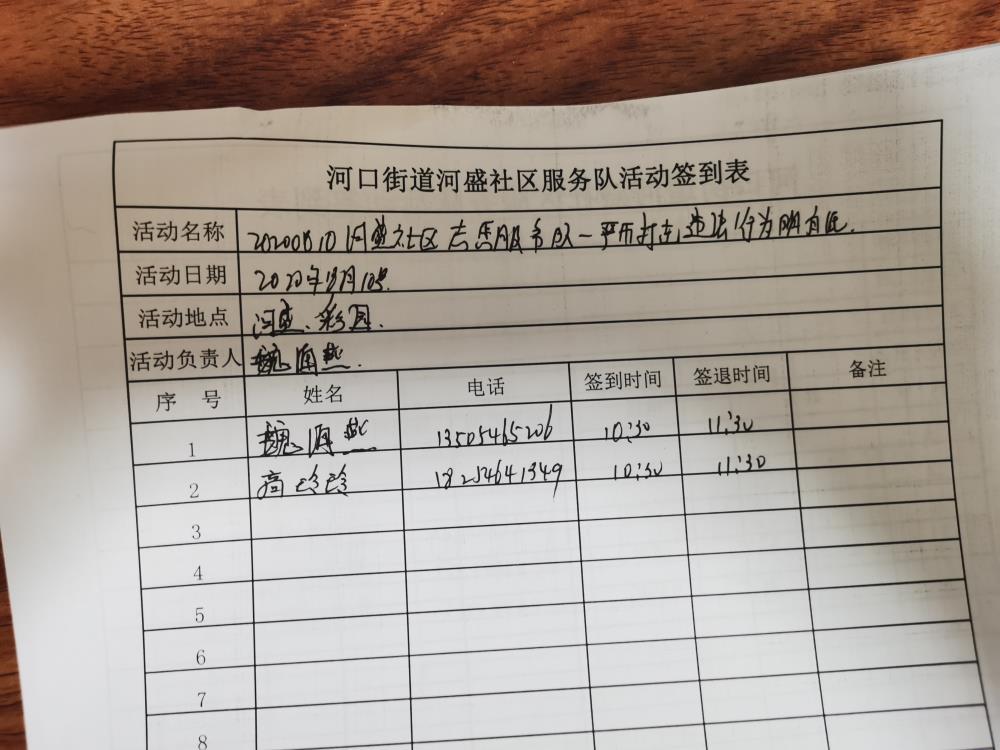 河口街道河盛社区服务队活动签到表
活动名称 20200810河盛社区志愿服务队一严厉打击违法行为
活动日期 2020年8月10号.
活动地点 河盛、彩园.
活动负责人 魏海燕.
序 号 姓名 电话 签到时间 签退时间 备注
1 魏海燕 13505465206 10:30 11:30
2 高玲玲 18254641349 10:30 11:30
3
4
5
6
7
8